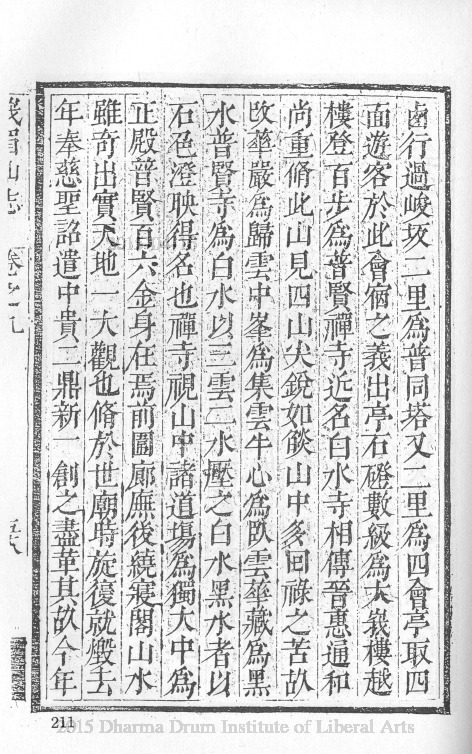 鹵行過峻坂二里爲普同塔又二里爲四會亭取四
面遊客於此會宿之義出亭石磴數級爲大峩樓越
樓登百步爲普賢禪寺近名白水寺相傳晉惠通和
尚重脩此山見四山尖銳如燄山中多回祿之苦故
改華嚴爲歸雲中峯爲集雲牛心爲臥雲華藏爲黑
水普賢寺爲白水以三雲二水壓之白水黑水者以
石色澄映得名也禪寺視山中諸道塲爲獨大中爲
正殿普賢百六金身在焉前圖廊廡後繞寢閣山水
雖奇出實天地一大觀也脩於世廟時旋復就燬去
年奉慈聖詔遣中貴二鼎新一創之盡革其故今年
峨眉山志 卷之九
211
2015 Dharma Drum Institute of Liberal Arts